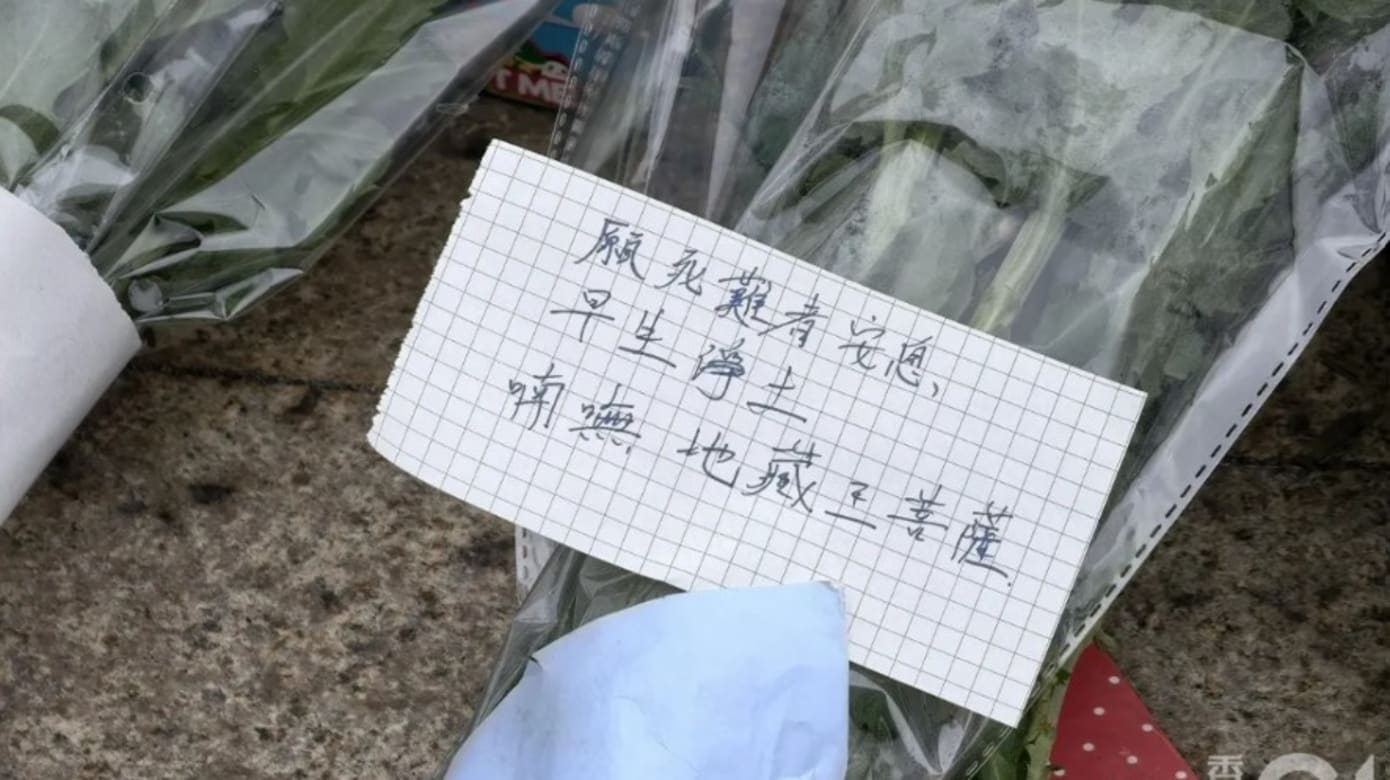 T ME
願死難者安息,
早生淨土
喃嘸 地藏王菩薩.
香 01